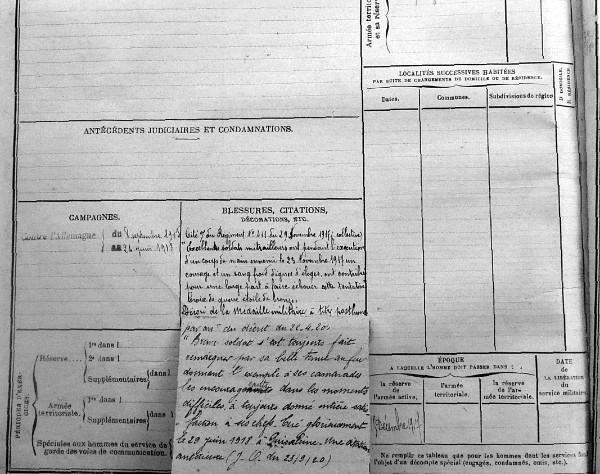 Armée territoriale
et sa réserve
LOCALITÉS SUCCESSIVES HABITÉES
PAR SUITE DE CHANGEMENTS DE DOMICILE OU DE RÉSIDENCE.
Dates.
Communes.
Subdivisions de région
D DOMICILE.
R RÉSIDENCE.
ANTÉCÉDENTS JUDICIAIRES ET CONDAMNATIONS.
CAMPAGNES.
Contre l'Allemagne
du 8 septembre
au 29 juin 1918
BLESSURES, CITATIONS,
DÉCORATIONS, ETC.
Cité du Régiment du 29 Novembre 1917 (collective)
"Excellents soldats mitrailleurs ont pendant l'exécution
d'un coup de main ennemi le 23 Novembre 1917 un
courage et un sang froid dignes d'éloges, ont contribué
pour une large part à faire échouer cette tentative
Croix de guerre étoile de bronze.
Décoré de la Médaille militaire à titre posthume
par du décret du 22.4.20.
"Brave soldat s'est toujours fait
remarquer par sa belle tenue au feu
donnant l'exemple à ses camarades
les encourageant dans les moments
difficiles, a toujours donné entière satis-
faction à ses chefs. Tué glorieusement
le 29 juin 1918 à Une citation
antérieure (J.O. du 23/9/20)
PÉRIODES D'EXER-
CICES.
Réserve
1re dans l
2e dans l
Supplémentaires
dans l
Armée
territoriale.
1re dans l
Supplémentaires
dans l
Spéciales aux hommes du service de
garde des voies de communication.
ÉPOQUE
À LAQUELLE L'HOMME DOIT PASSER DANS :
la réserve
de
l'armée active.
l'armée
territoriale.
la réserve
de l'ar-
mée territoriale.
DATE
de
LA LIBÉRATION
du
service militaire
Ne remplir ce tableau que pour les hommes dont les services font
l'objet d'un décompte spécial (engagés, condamnés, omis, etc.).